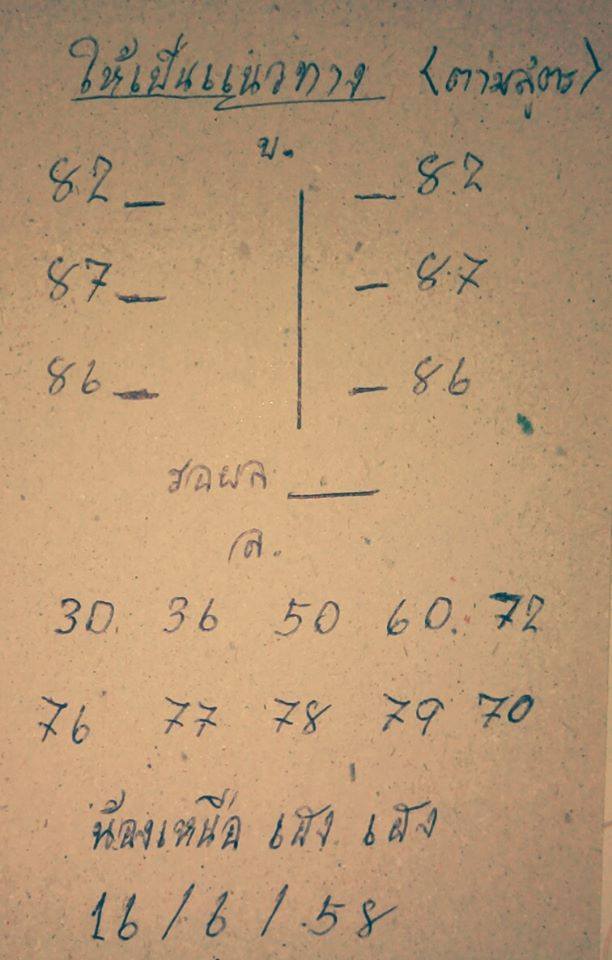 ให้เป็นแนวทาง (ตามสูตร)
บ.
82_ _82
87_ _87
86_ _86
รอผล ___
ล.
30. 36 50 60. 72
76 77 78 79 70
น้องเหนือ เฮง เฮง
16/6/58